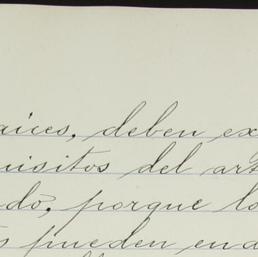 aices, deben ex
uisitos del art
do, porque lo
s pueden en